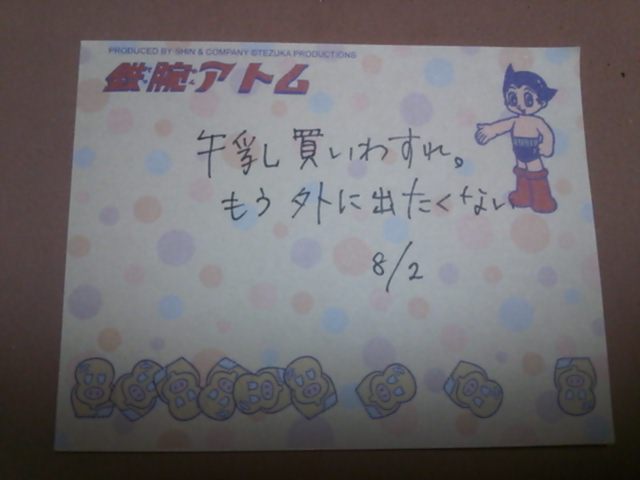 PRODUCED BY SHIN & COMPANY ©TEZUKA PRODUCTIONS
鉄腕アトム
牛乳買いわすれ。
もう外に出たくない
8/2